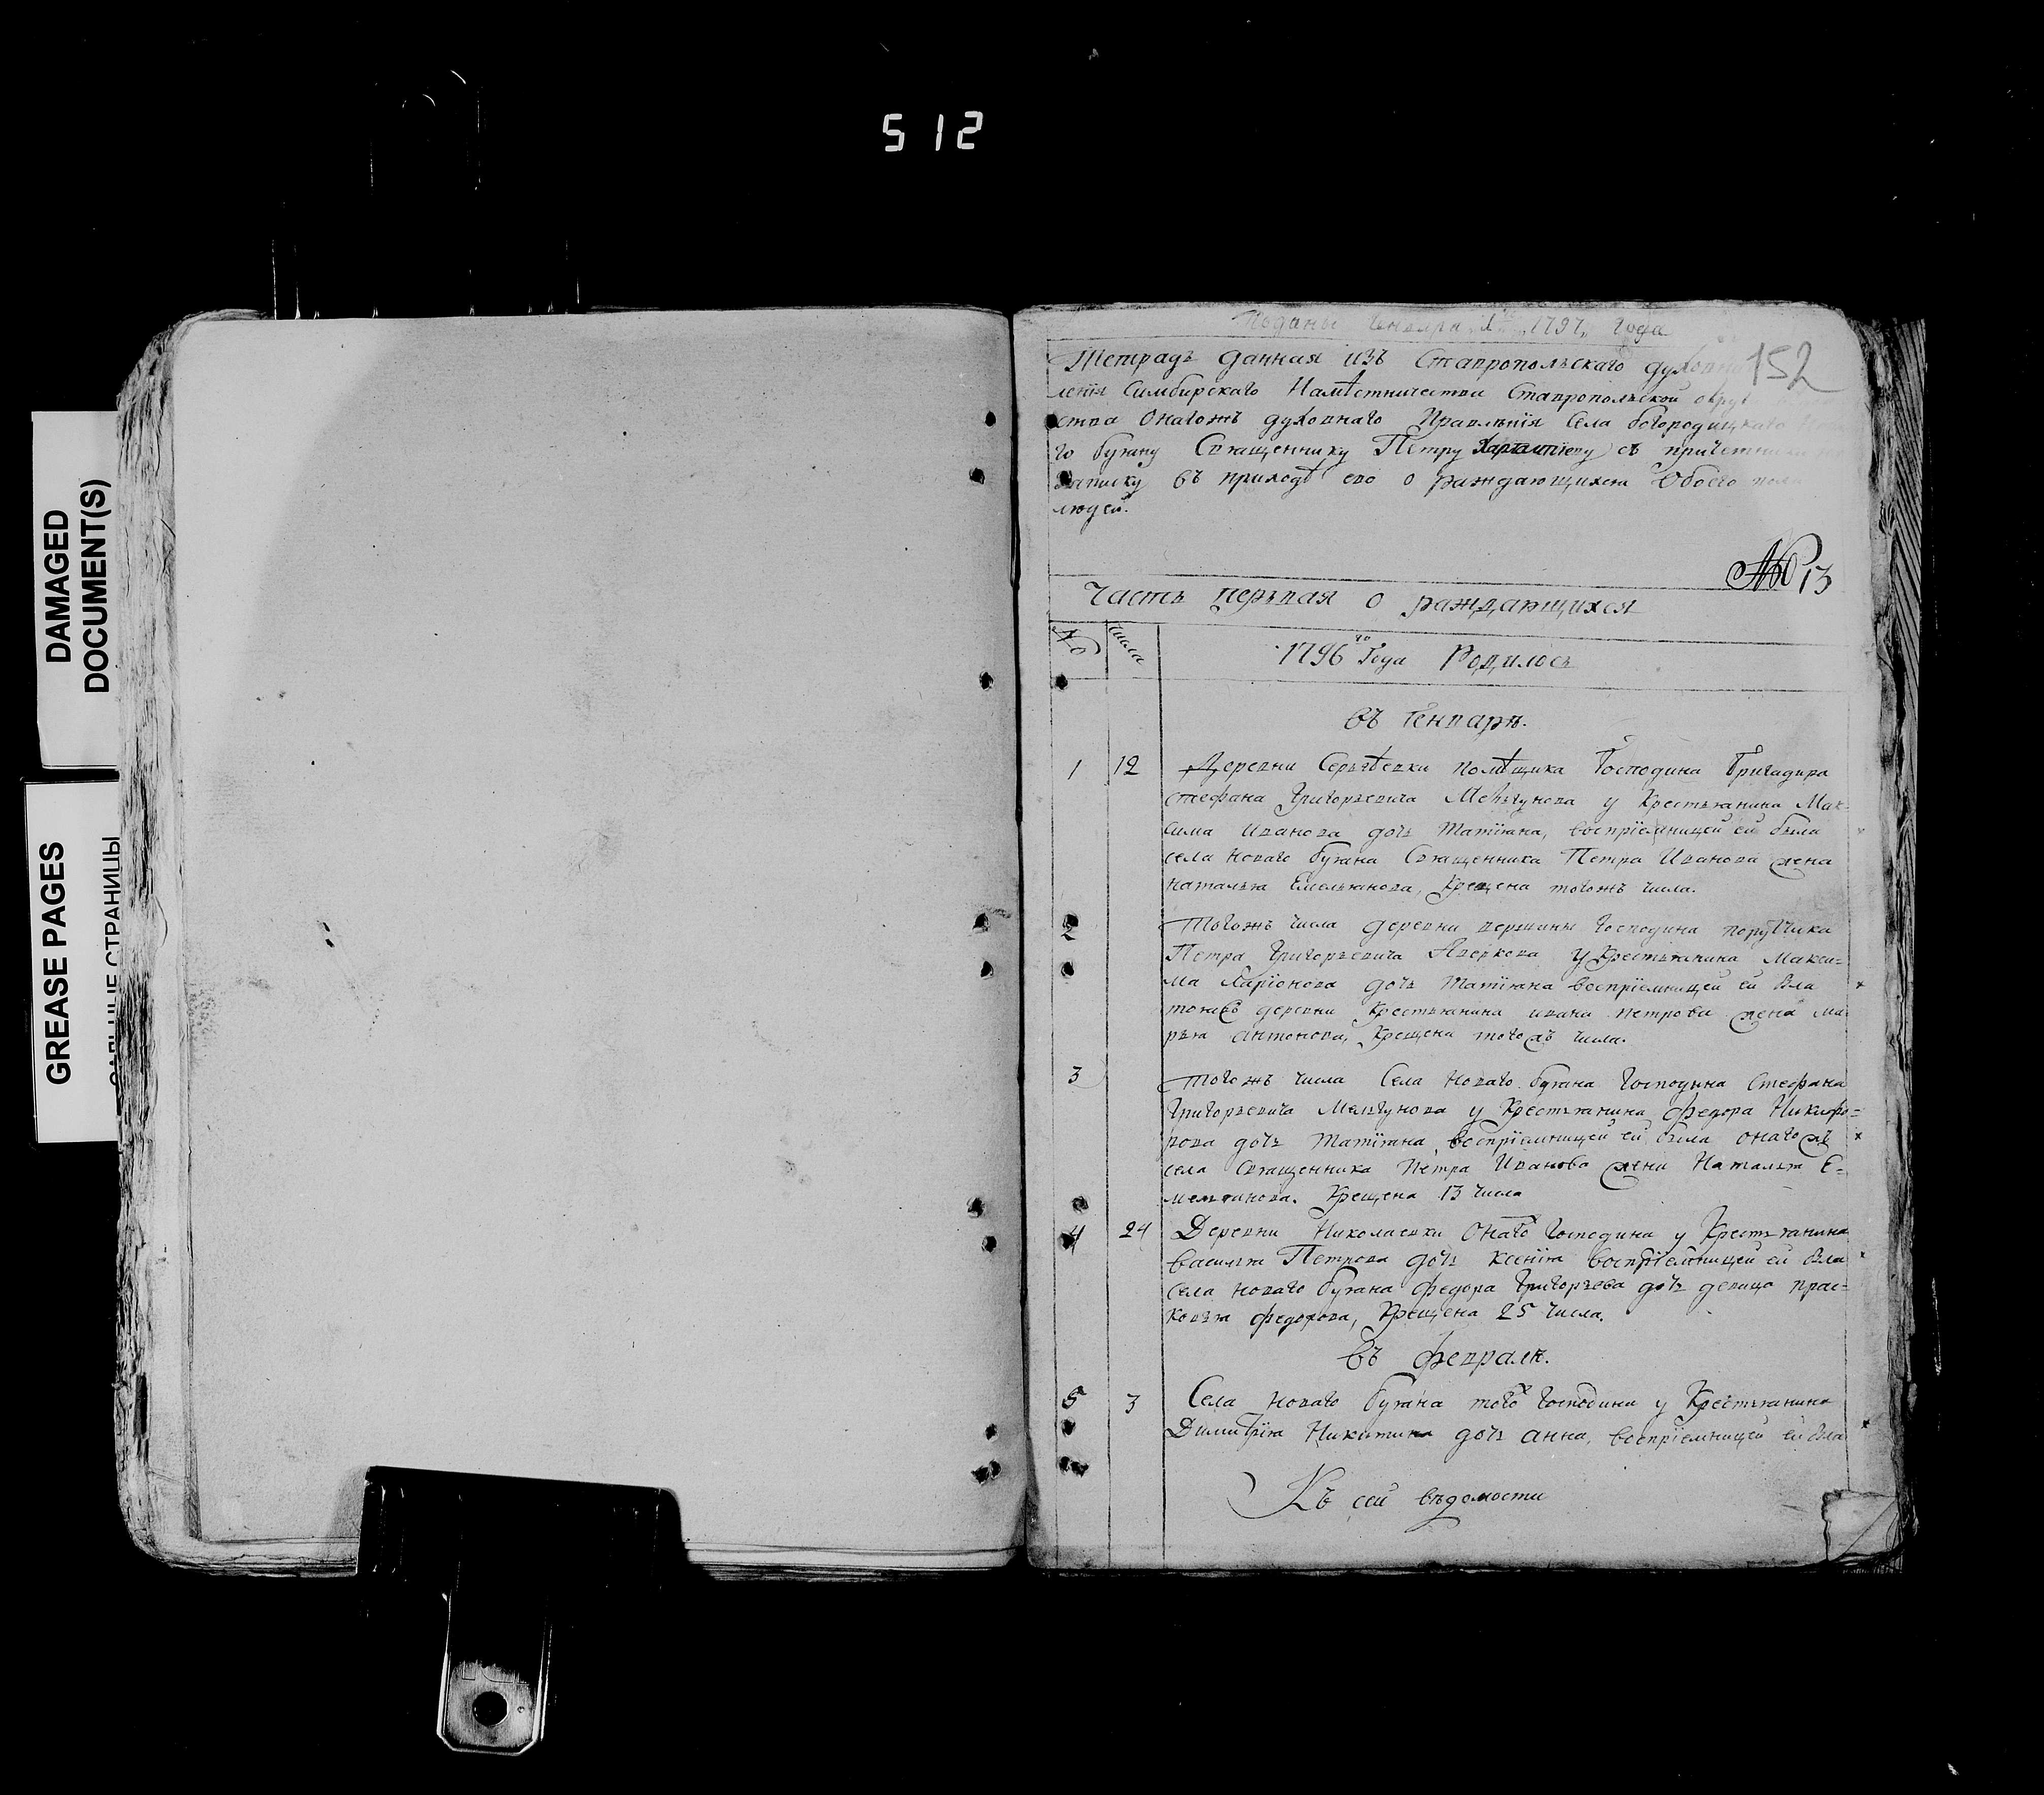 512
DAMAGED
DOCUMENT(S)
GREASE PAGES
СТРАНИЦЫ
Поданы Генваря 1797 года
152
Тетрадь данная изъ Ставропольскаго
ления Симбирскаго Намѣстничества Ставропольской
ства Онагожъ духовнаго Правленія Села богородицкаго
го буяну Священнику Петру съ
записку въ приходѣ ево о раждающихся Обоего пола
людей.
№ 13
Часть перьвая о раждающихся
№ числа
1796го Года Родилось
въ Генварѣ.
1 12 Деревни Сергѣевки помѣщика Господина Бригадира
стефана Григорьевича Мельгунова у Крестьянина Мак-
сима Иванова дочь Татіяна, воспріемницей ей была
села Новаго буяна Священника Петра Иванова жена
Наталья Емельянова, Крещена тогожъ числа.
2 Тогожъ числа деревни вершины Господина порутчика
Петра Григорьевича Аверкева у Крестьянина Макси-
ма Ларіонова дочь Татіяна воспріемницей ей была
тояжъ деревни Крестьянина ивана петрова жена ма
рья антонова, Крещена тогожъ числа.
3 Тогожъ числа Села Новаго буяна Господина Стефана
Григорьевича Мельгунова у Крестьянина федора Никифо-
рова дочь Татіяна, воспріемницей ей была онагожъ
села Священника Петра Иванова жена Наталья Е-
мельянова. Крещена 13 числа
4 24 Деревни Николаевки Онаго Господина у Крестьянина
василья Петрова дочь Ксенія воспріемницей ей была
села Новаго буяна федора Григорьева дочь девица прас-
ковья федорова, Крещена 25 числа.
въ февралѣ.
5 3 Села Новаго буяна того господина у Крестьянина
Димитрія Никитина дочь анна, воспріемницей ей была
Къ сей вѣдомости